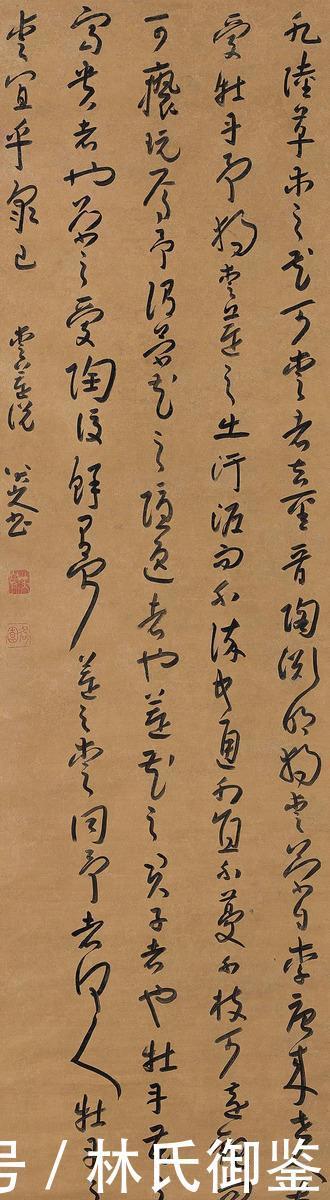 水陸草木之花可愛者甚蕃晉陶淵明獨愛菊自李唐来世人
愛牡丹予獨愛蓮之出淤泥而不染中通外直不蔓不枝可遠觀
可褻玩焉予謂菊花之隱逸者也蓮花之君子者也牡丹花
富貴者也菊之愛陶後鮮有聞蓮之愛同予者何人牡丹
愛宜乎眾已
愛蓮說
八大山人書
号 / 林氏御鉴